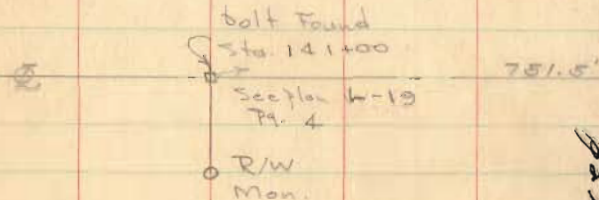 bolt Found
Sta. 141+00
℄ 751.5'
See plan L-19
Pg. 4
R/W
Mon.